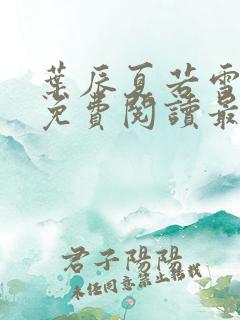 葉辰夏若雪
免費閱讀最
君子陽陽
未經同意禁止轉載